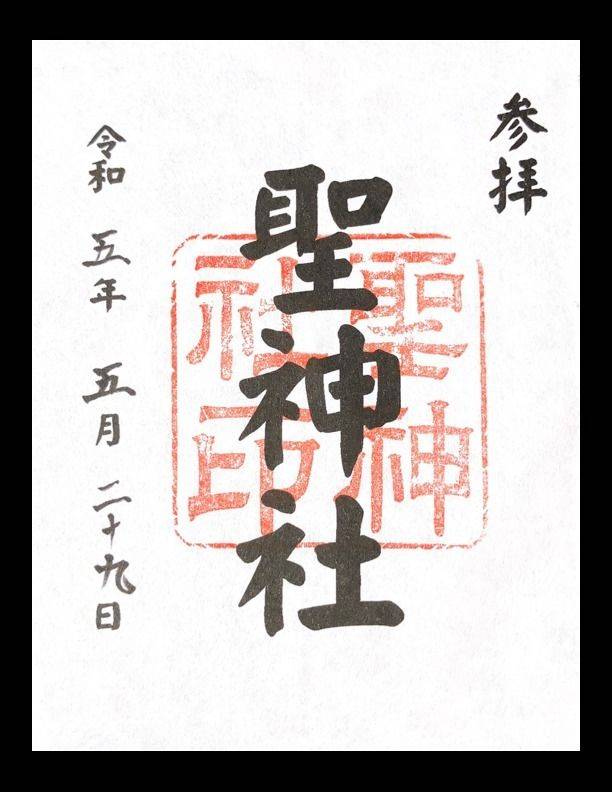 参拝
聖神社
聖神
社印
令和 五年 五月 二十九日